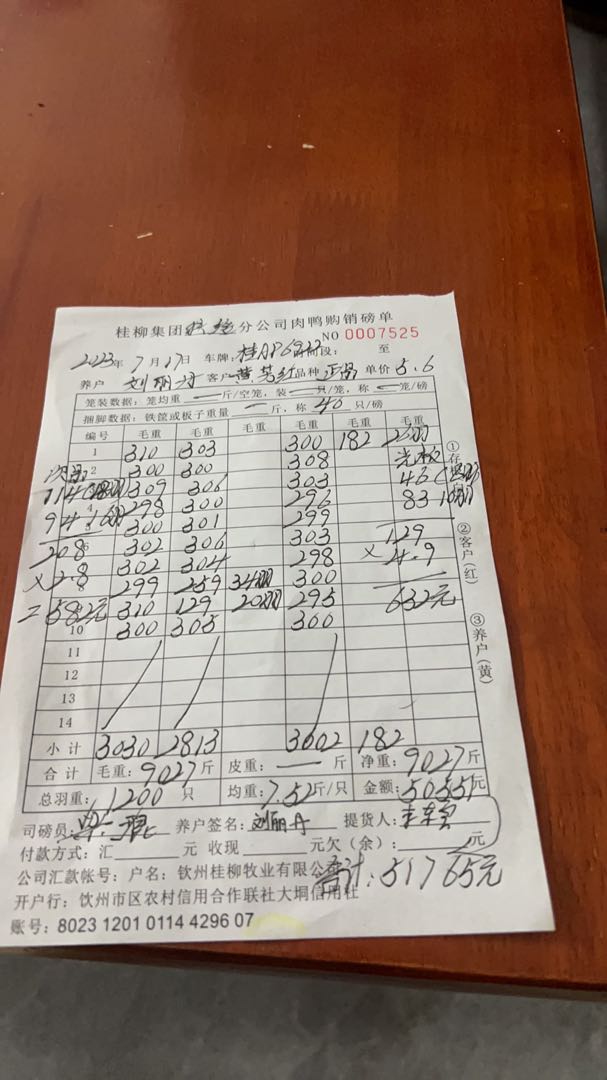 桂柳集团 分公司肉鸭购销磅单
NO 0007525
2023年 7月17日 车牌: 桂AP6 时间段: 至
养户 刘丽丹 客户 品种 正品 单价 5.6
笼装数据: 笼均重 一 斤/空笼, 装 一 只/笼, 称 一 笼/磅
捆脚数据: 铁筐或板子重量 一 斤, 称 40 只/磅
编号 毛重 毛重 毛重 毛重 毛重 毛重
1 310 303 300 182
2 300 300 308
114 309 306 303 46
94 298 300 296 83
300 301 299
208 302 306 303 129
×2.8 302 304 298 ×4.9
299 259 34羽 300
=582元 310 129 20羽 295 632元
10 300 305 300
11
12
13
14
小计 3030 2813 3002 182
合计 毛重: 9027 斤 皮重: 一 斤 净重: 9027 斤
总羽重: 1200 只 均重: 7.52 斤/只 金额: 50551 元
司磅员: 养户签名: 刘丽丹 提货人:
付款方式: 汇 元 收现 元欠(余): 元
公司汇款帐号: 户名: 钦州桂柳牧业有限公司
合计: 51765元
开户行: 钦州市区农村信用合作联社大垌信用社
账号: 8023 1201 0114 4296 07
①存根
②客户(红)
③养户(黄)